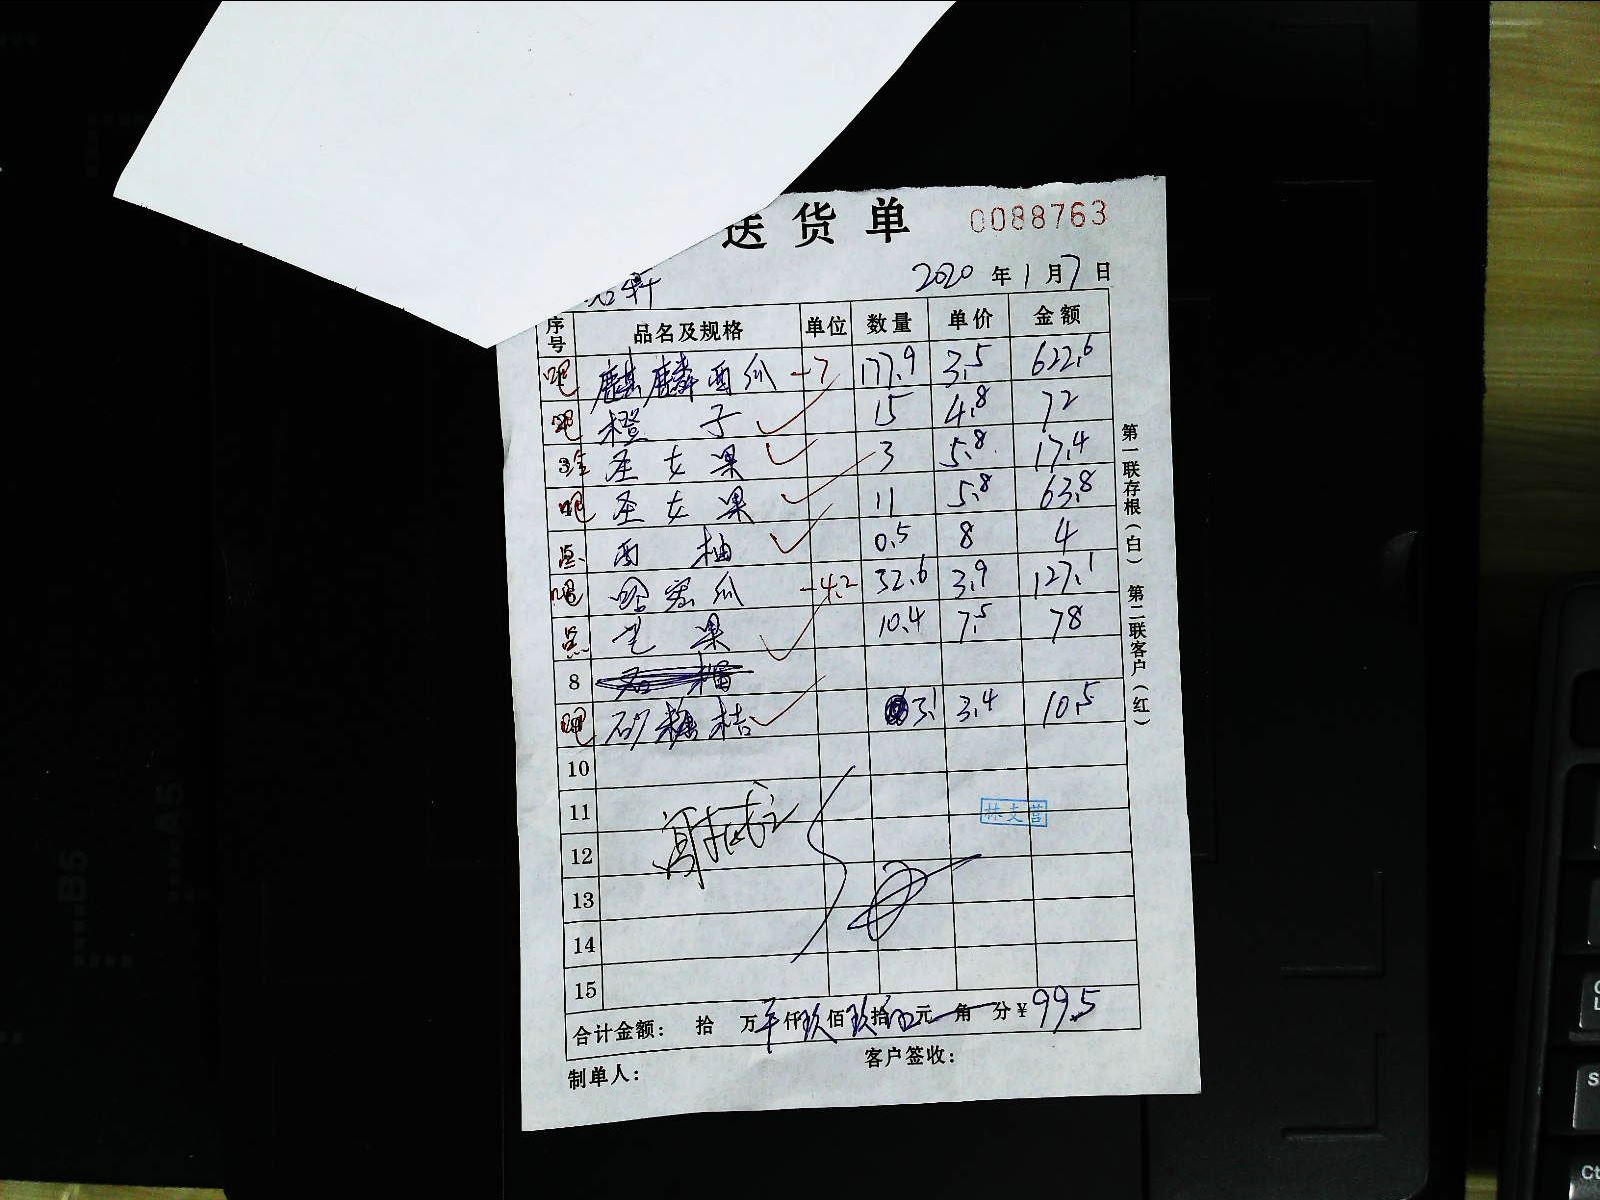 送货单 0088763
轩 2020年1月7日
序号 品名及规格 单位 数量 单价 金额
吧 麒麟西瓜 -7 177.9 3.5 622.6
吧 橙子 15 4.8 72
3 圣女果 3 5.8 17.4
吧 圣女果 11 5.8 63.8
点 西柚 0.5 8 4
吧 哈密瓜 -4.2 32.6 3.9 127.1
点 毛果 10.4 7.5 78
8
吧 砂糖桔 3.1 3.4 10.5
10
11
林文营
12
13
14
15
合计金额: 拾 万 仟玖佰玖拾伍元 角 分¥995
制单人: 客户签收:
第一联存根(白) 第二联客户(红)
B5
A5